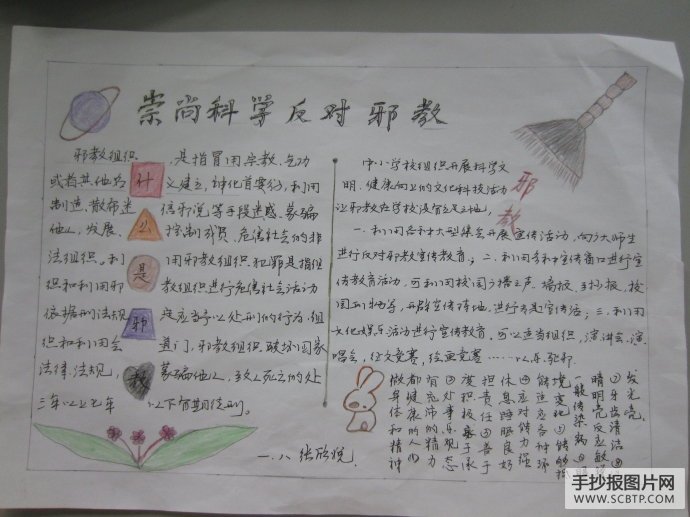 崇尚科学反对邪教
邪教组织 是指冒用宗教、气功
或者其他名 什 义建立,神化首要分,利用
制造、散布迷 信邪说,等手段迷惑、蒙骗
他人,发展、 么 控制成员、危害社会的非
法组织。利 用邪教组织犯罪是指组
织和利用邪 是 教组织进行危害社会活动
依据刑法规 邪 是应当予以处刑的行为,组
织和利用会 道门,邪教组织,破坏国家
法律、法规, 教 蒙骗他人,致人死亡的处
三年以上七年 以下有期徒刑。
一.八 张欣悦
中小学校组织开展科学文
明、健康向上的文化科技活动
让邪教在学校没有立足之地,
邪教
一、利用各种大型集会开展宣传活动,向广大师生
进行反对邪教宣传教育;二、利用各种宣传窗口进行宣
传教育活动,可利用校园广播之声、墙报、手抄报、校
园刊物等,开辟宣传阵地,进行专题宣传;三、利用
文化娱乐活动进行宣传教育。可以适当组织,演讲会、演
唱会,征文竞赛,绘画竞赛……以乐驱邪.
发光亮,
②牙齿清洁
晴明亮反应敏
一般传染病
境变化
储各种
应对能力强
休息睡眠良好
担责任
度积极
②处事乐观态
有充沛的精力
都健康的
做身体和精神
手抄报图片网
WWW.SCBTP.COM